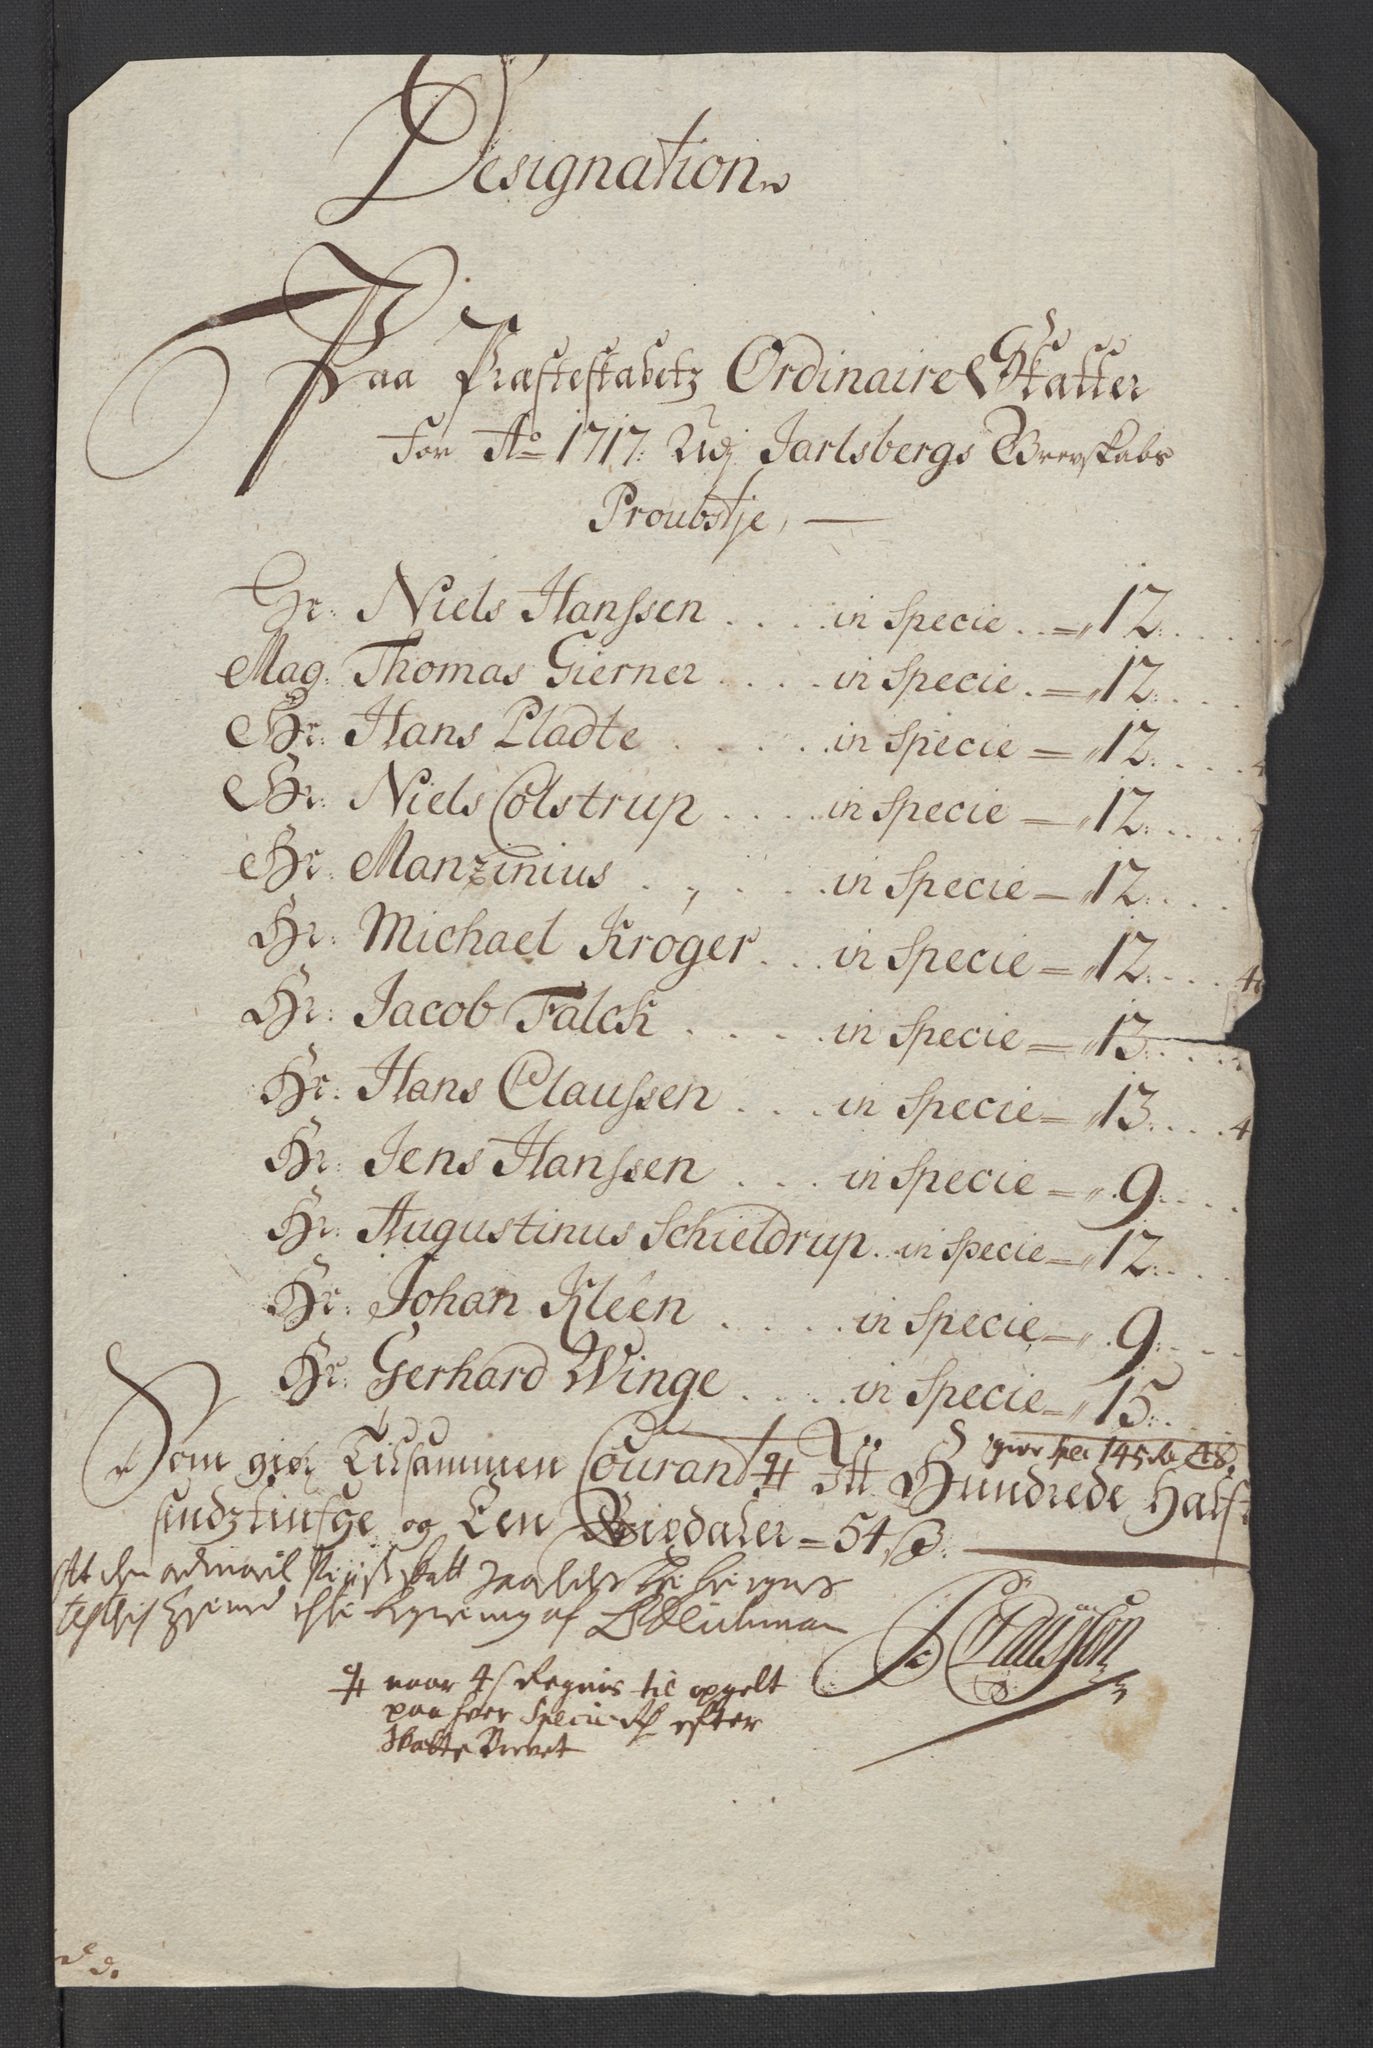 Designation
Paa Præsteskabetz Ordinaire Skatter
For Ao 1717. Udj Jarlsbergs Grevskabs
Proubstje, —
Hr: Niels Hanssen . . . . in Specie . . = 12: . . . . .
Mag: Thomas Gierner . . . . in Specie . = 12: . . . .
Hr: Hans Pladte . . . . . in Specie = 12: . . . . 4
Hr: Niels Colstrup . . . . in Specie — 12: . . . . 4
Hr: Manzinius . , . . . in Specie — 12: . . . .
Hr: Michael Kroger . . . in Specie = 12: . . . . 48
Hr: Jacob Falck . . . . . in Specie = 13: . . . .
Hr: Hans Claussen . . . in Specie = 13: . . . . 4
Hr: Jens Hanssen . . . . in Specie = . 9: . . . .
Hr: Augustinus Schieldrup . in Specie = 12: . . .
Hr: Johan Kleen . . . . . in Specie — . 9: . . . .
Hr: Gerhard Winge . . . . in Specie = 15: . .
giør spec 145 Rd 48
Som giør Tilsammen Courant Itt Hundrede Half
sindztiufge og Een Rixdaler = 54 ß: —
naar 4 s Regnis til opgelt
paa hver Specie Rd efter
Skatte Brevet